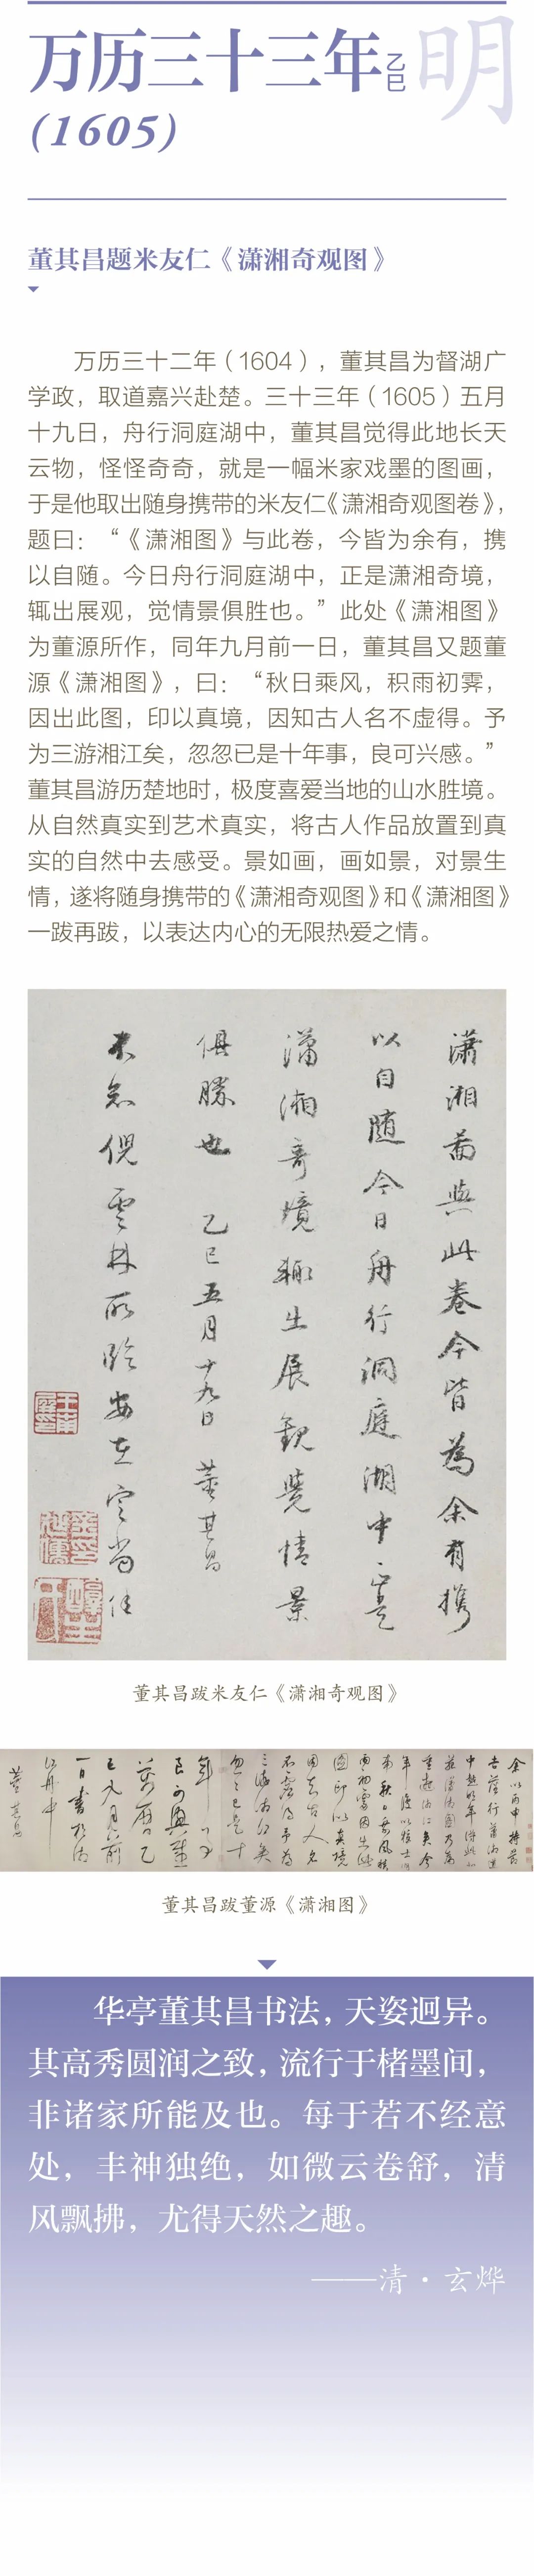 万历三十三年乙巳
明
(1605)
董其昌题米友仁《潇湘奇观图》
万历三十二年（1604），董其昌为督湖广
学政，取道嘉兴赴楚。三十三年（1605）五月
十九日，舟行洞庭湖中，董其昌觉得此地长天
云物，怪怪奇奇，就是一幅米家戏墨的图画，
于是他取出随身携带的米友仁《潇湘奇观图卷》，
题曰：“《潇湘图》与此卷，今皆为余有，携
以自随。今日舟行洞庭湖中，正是潇湘奇境，
辄出展观，觉情景俱胜也。”此处《潇湘图》
为董源所作，同年九月前一日，董其昌又题董
源《潇湘图》，曰：“秋日乘风，积雨初霁，
因出此图，印以真境，因知古人名不虚得。予
为三游湘江矣，忽忽已是十年事，良可兴感。”
董其昌游历楚地时，极度喜爱当地的山水胜境。
从自然真实到艺术真实，将古人作品放置到真
实的自然中去感受。景如画，画如景，对景生
情，遂将随身携带的《潇湘奇观图》和《潇湘图》
一跋再跋，以表达内心的无限热爱之情。
潇湘图与此卷今皆為余有携
以自随今日舟行洞庭湖中正是
潇湘奇境輒出展観覺情景
俱勝也 乙巳五月十九日 董其昌
董其昌跋米友仁《潇湘奇观图》
董其昌跋董源《潇湘图》
华亭董其昌书法，天姿迥异。
其高秀圆润之致，流行于楮墨间，
非诸家所能及也。每于若不经意
处，丰神独绝，如微云卷舒，清
风飘拂，尤得天然之趣。
——清·玄烨